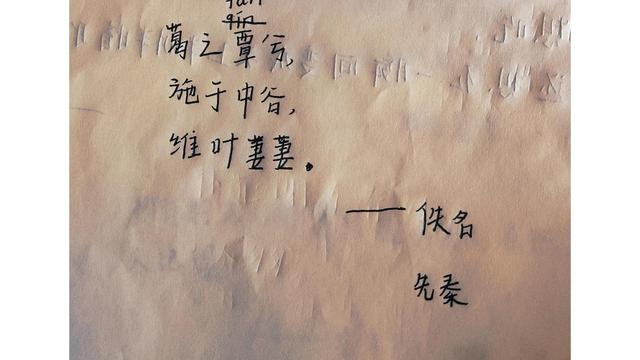 qin
葛之覃兮,
施于中谷,
维叶萋萋。
——佚名
先秦